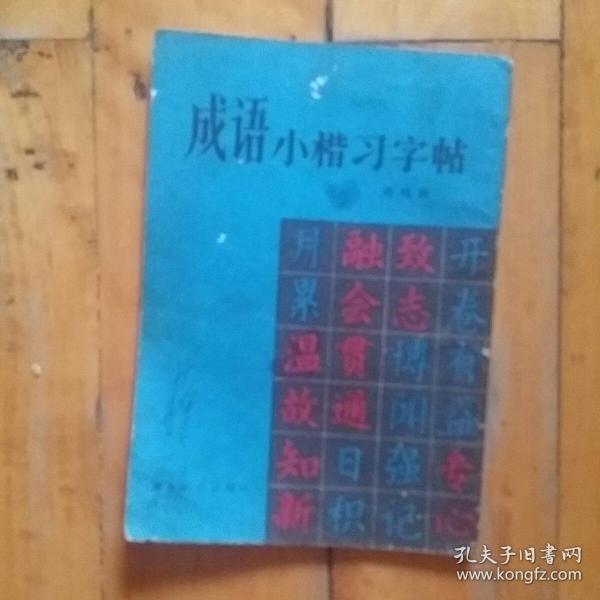 成语小楷习字帖
开卷有益专心
致志博闻强记
融会贯通日积
月累温故知新
孔夫子旧书网
www.kongfz.com